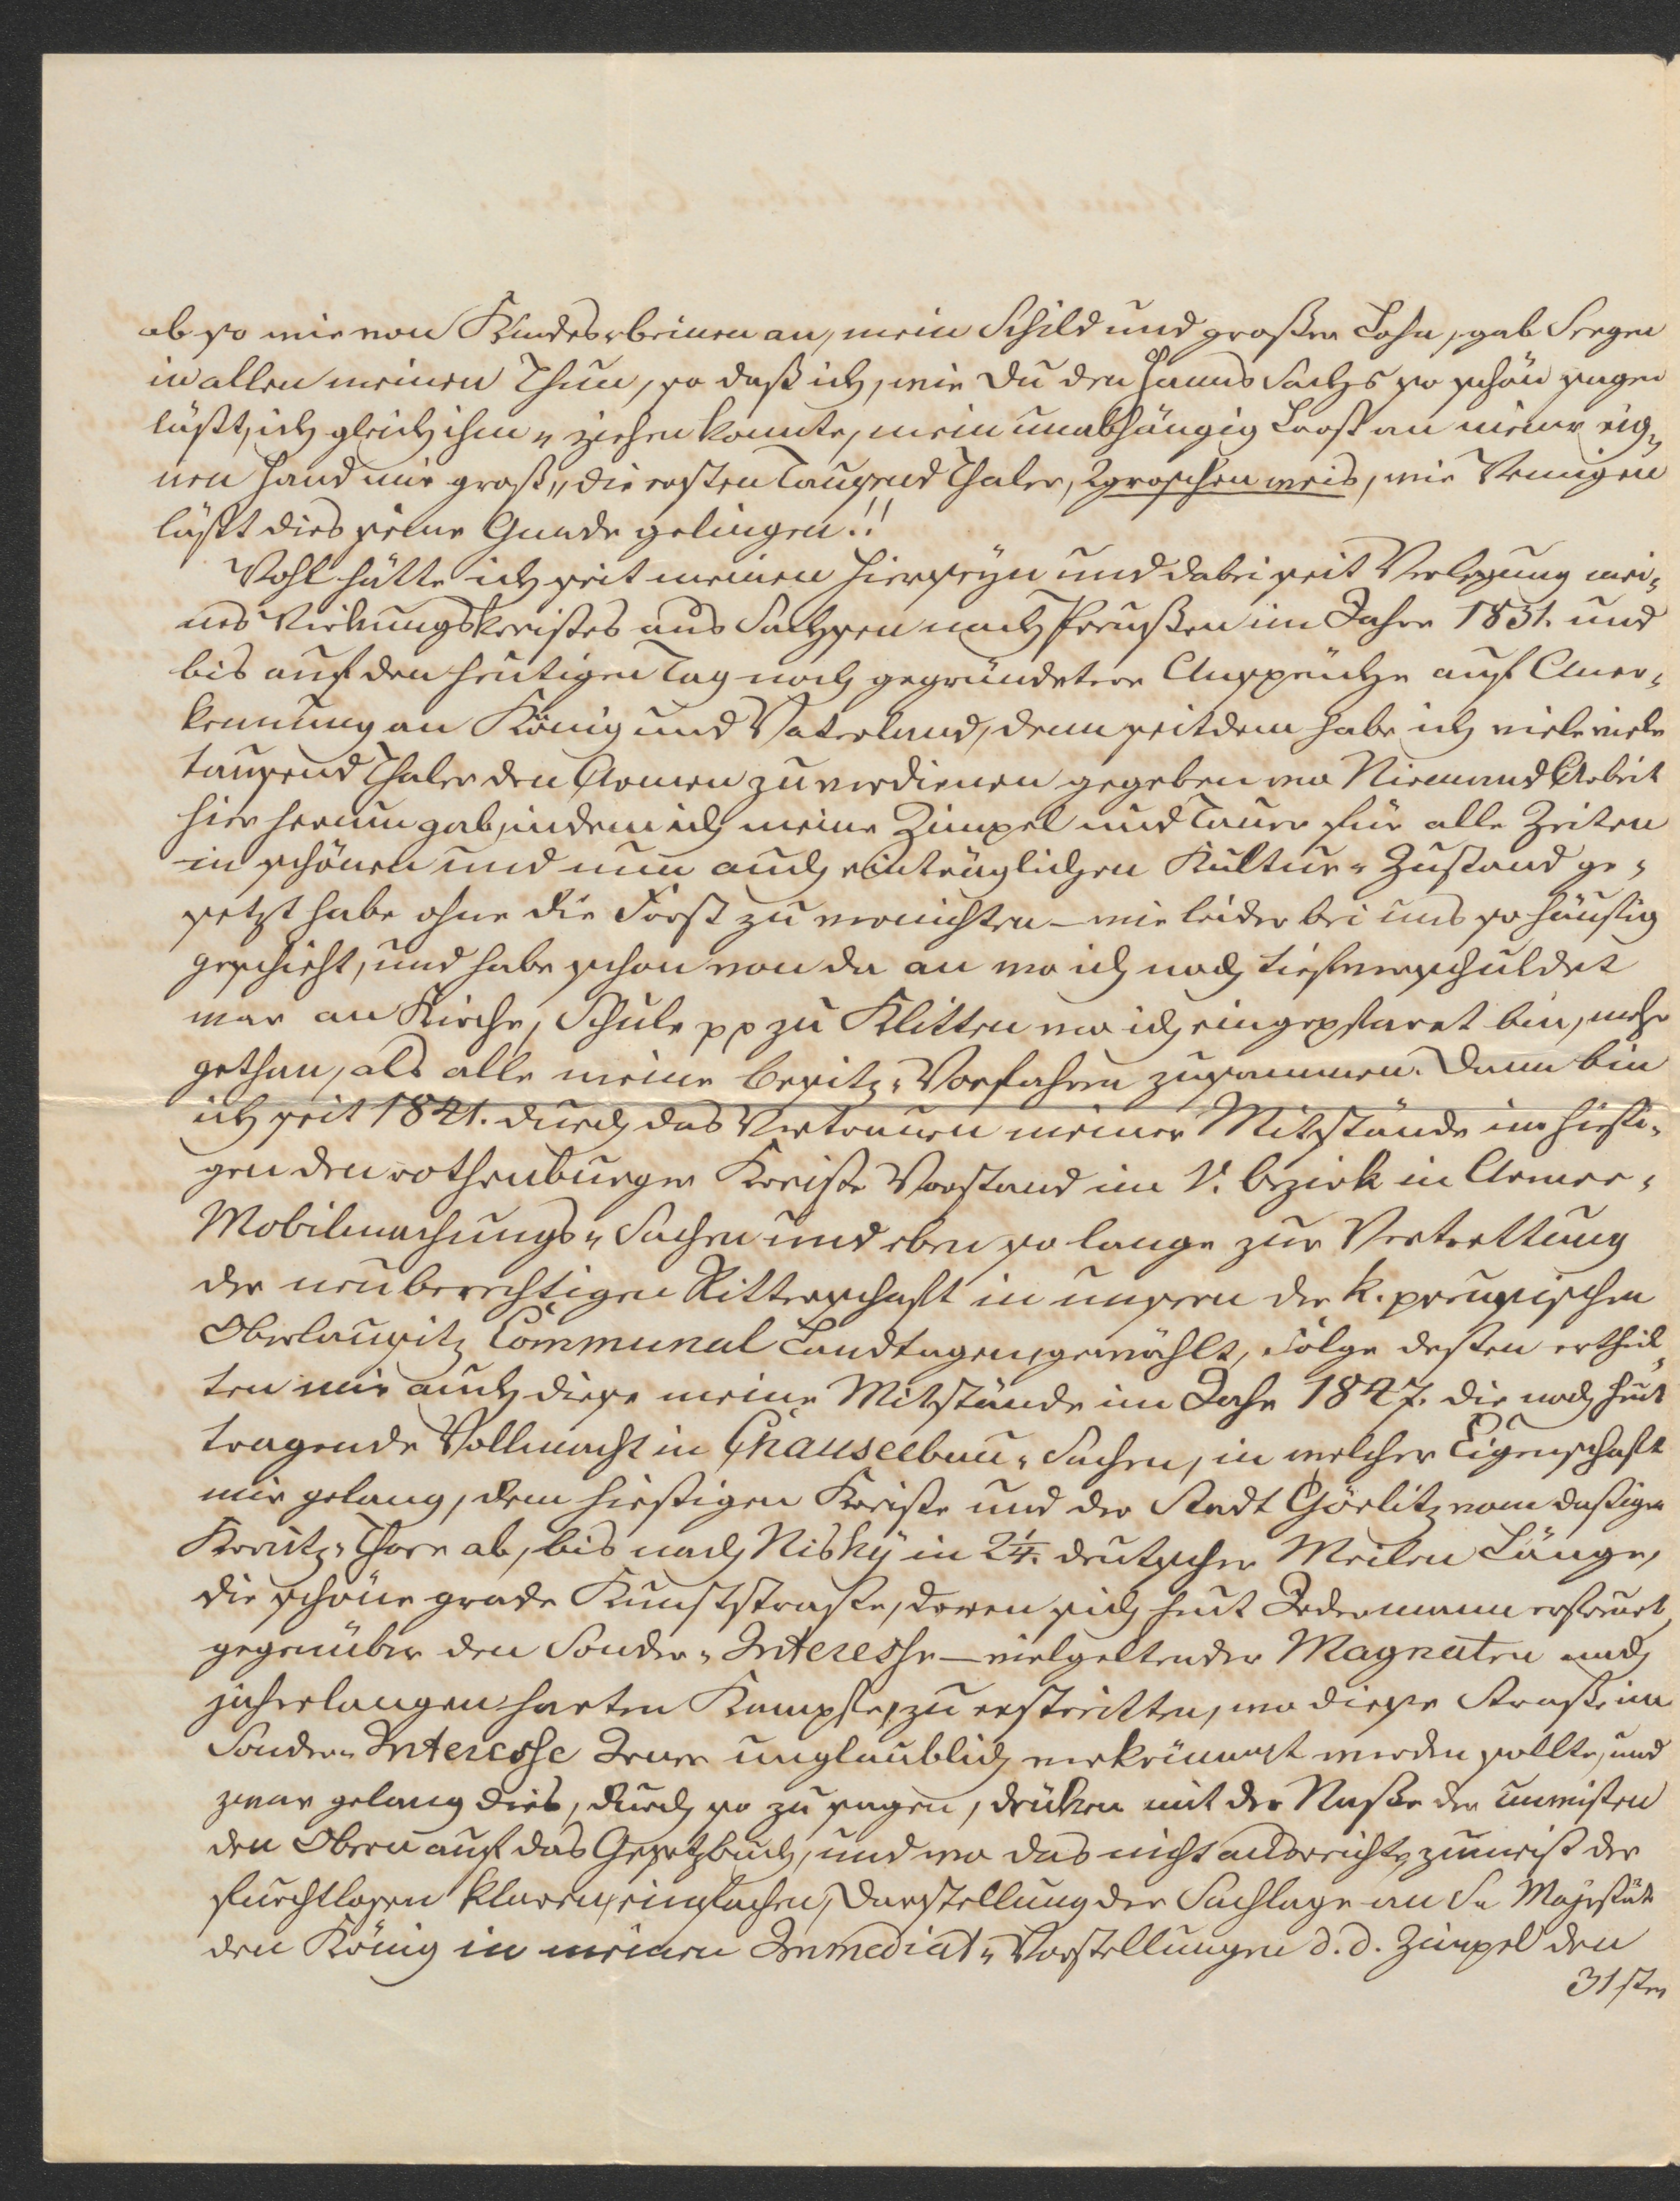 ab so wie von Kindesbeinen an, mein Schild und großer Lohn, gab Seegen
in allen meinen Thun, so daß ich, wie Du den Hanns Sachs so schön sagen
läßt, ich gleich ihm „ ziehen konnte, mein unabhängig Looß an meiner eig„
nen Hand mir groß„ die ersten Tausend Thaler, 2groschenweis, wie Wenigen
läßt dies seine Gnade gelingen!!
Wohl hätte ich seit meinen Hierseyn und dabei seit Verlegung mei„
nes Wirkungskreißes aus Sachsen nach Preußen im Jahre 1831. und
bis auf den heutigen Tag noch gegründetere Ansprüche auf Aner„
kennung an König und Vaterland, denn seitdem habe ich viele viele
tausend Thaler den Armen zu verdienen gegeben wo Niemand Arbeit
hier herum gab, indem ich meine Zimpel und Tauer für alle Zeiten
in schönen und nun auch einträglichen Kultur„Zustand ge„
setzt habe ohne die Forst zu vernichten – wie leider bei uns so häufig
geschieht, und habe schon von da an wo ich noch tiefverschuldet
war an Kirche, Schule pp zu Klitten wo ich eingepfarrt bin, mehr
gethan, als alle meine Besitz„Vorfahren zusammen. Dann bin
ich seit 1841. durch das Vertrauen meiner Mitstände im hiesi„
gen den rothenburger Kreiße Vorstand im V. Bezirk in Armee„
Mobilmachungs„Sachen und eben so lange zur Vertrettung
der neuberechtigen Ritterschaft in unsern der k. preusischen
Oberlausitz Communal Landtagen, gewählt, Folge dessen ertheil„
ten mir auch diese meine Mitstände im Jahr 1847. die noch heut
tragende Vollmacht in Chauseebau„Sachen, in welcher Eigenschaft
mir gelang, dem hiesigen Kreiße und der Stadt Görlitz vom dasigen
Kreutz„Thore ab, bis nach Nisky in 2¼. deutscher Meilen Länge,
die schöne grade Kunststraße, deren sich heut Jedermann erfreuet,
gegenüber den Sonder„Interesse – vielgeltender Magnaten nach
jahrelangen harten Kampfe, zu erstreitten, wo diese Straße im
Sonder„Interesse Jener unglaublich verkrümmt werden sollte, und
zwar gelang dies, durch so zu sagen, drüken mit der Naße der
den Obern auf das Gesetzbuch, und wo das nicht ausreichte, zumeist der
furchtlosen klaren, einfachen, Darstellung der Sachlage an Se Majestät
den König in meinen Immediat„Vorstellungen d. d. Zimpel den
31sten